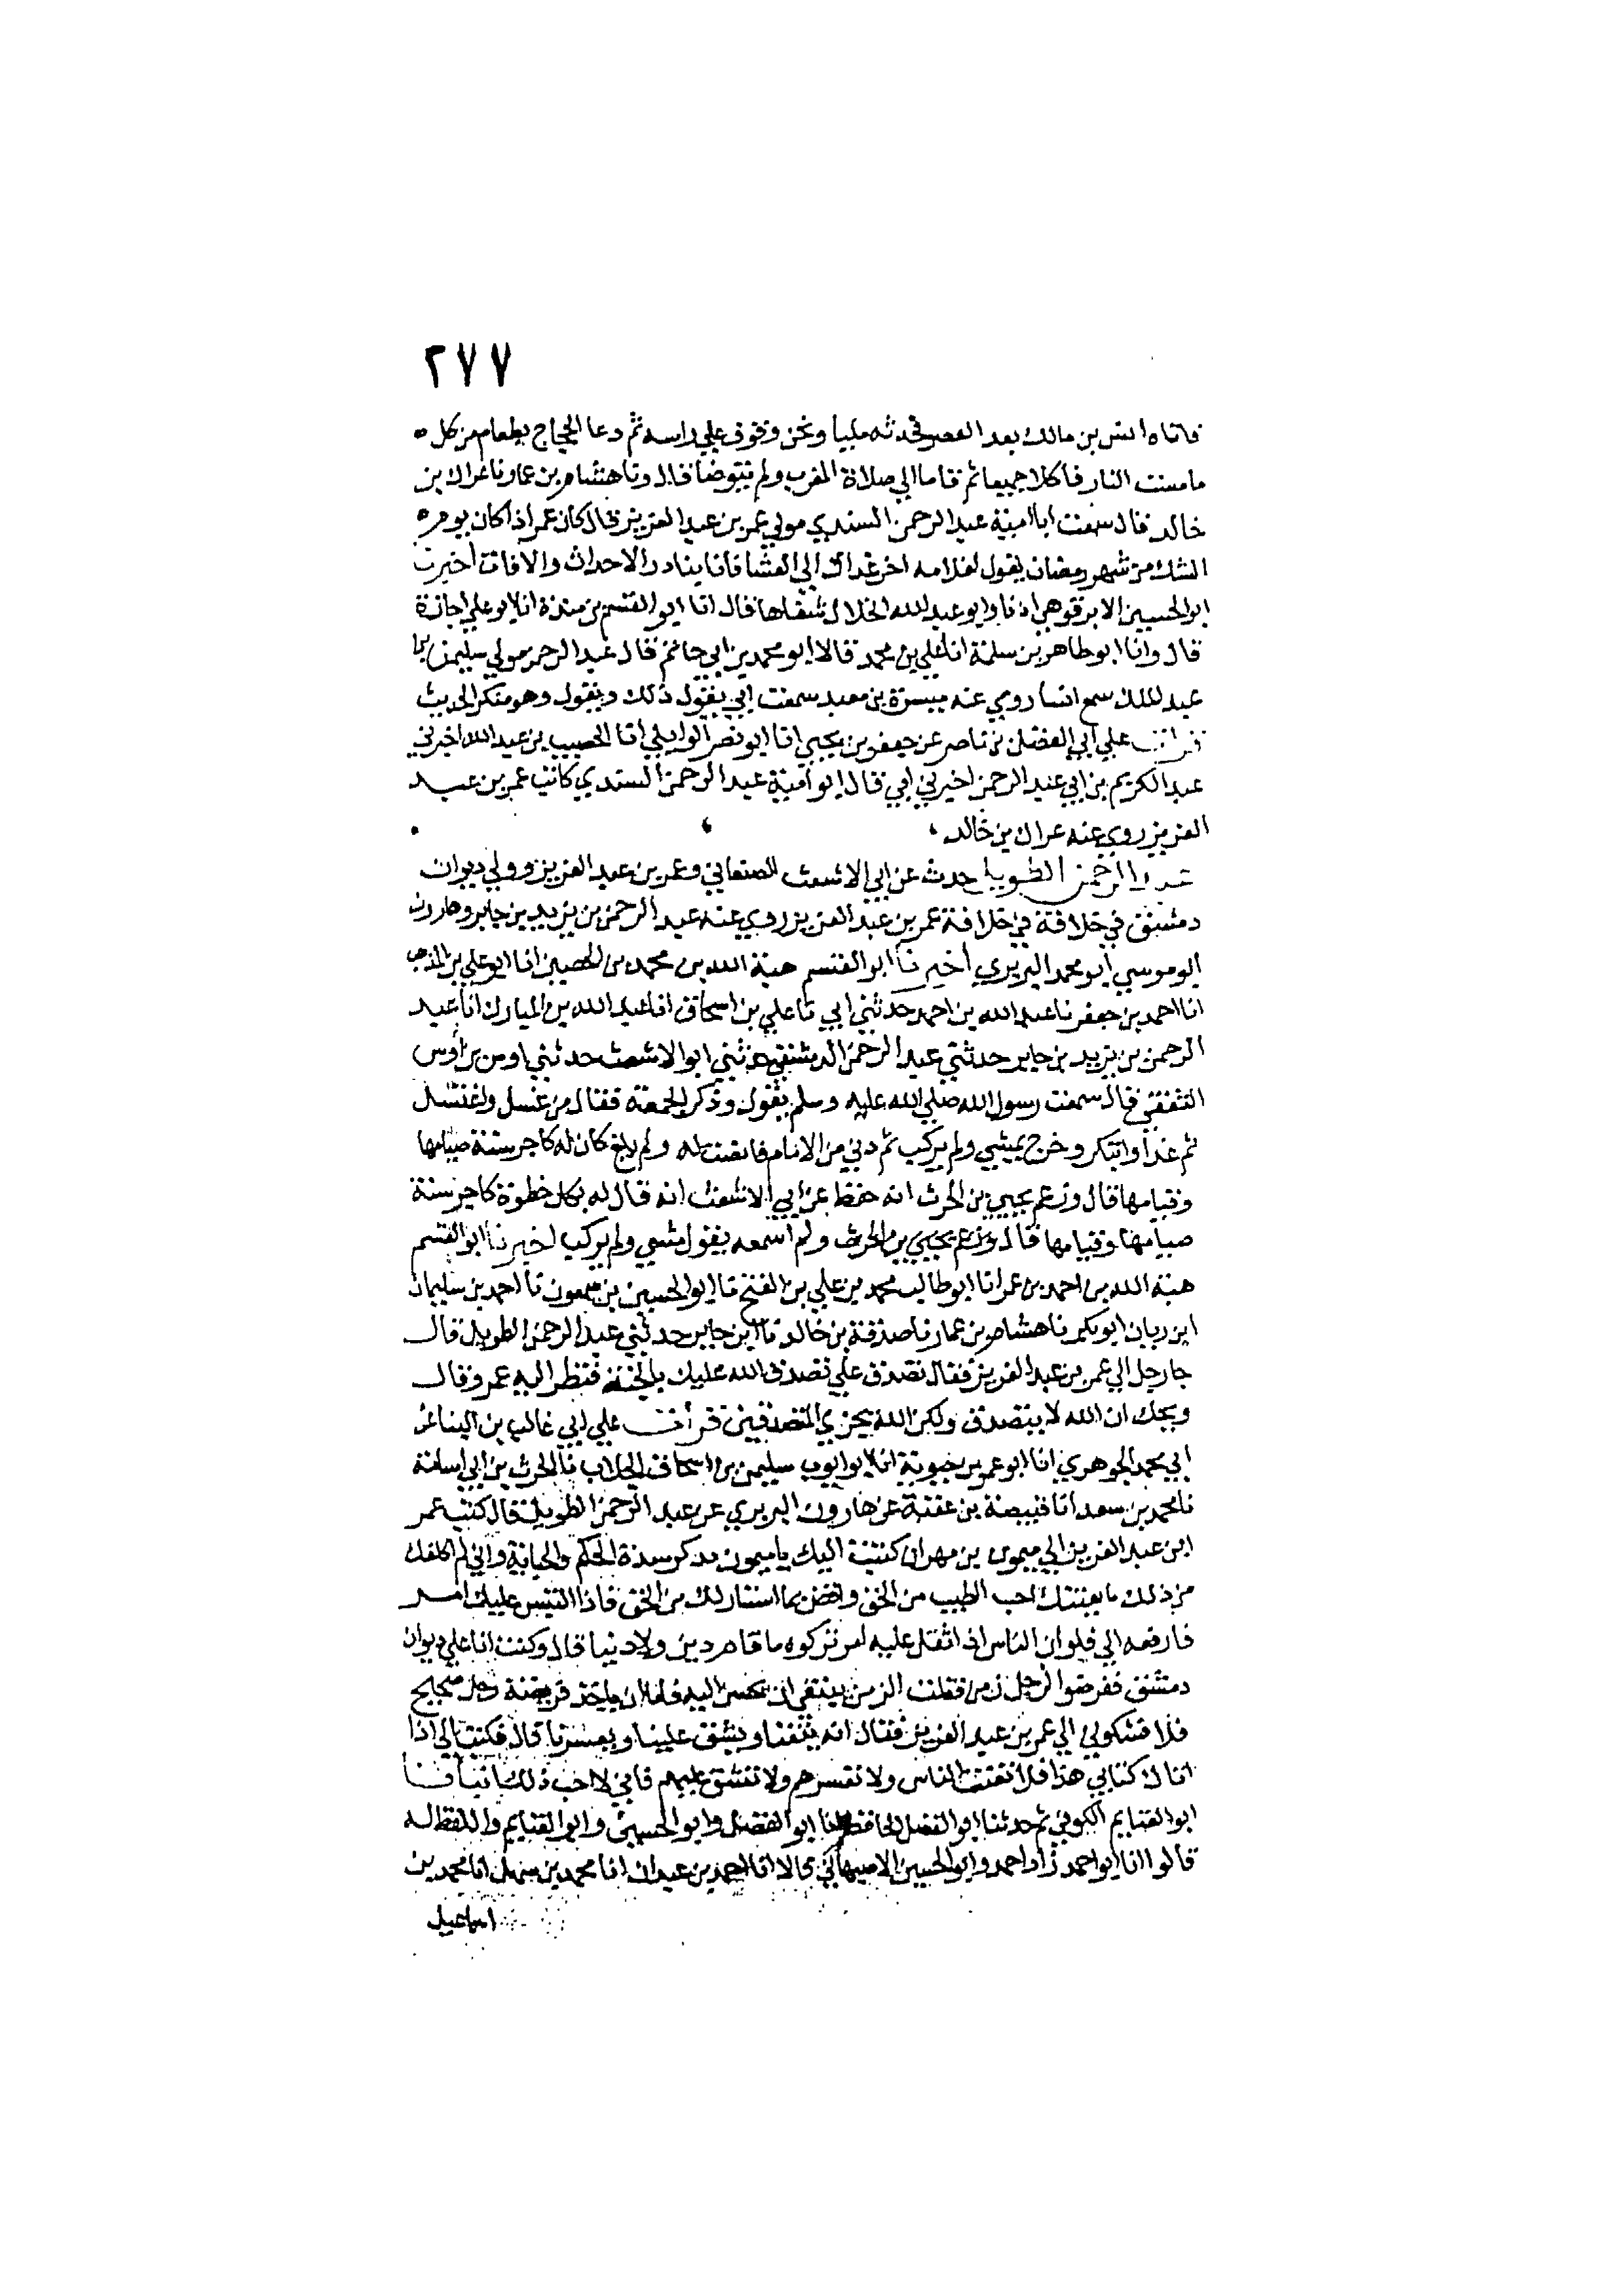 ٢٧٧
فاتاه انس بن مالك بعد العصر فحدثه مليا ونحن وقوف علي راسه ثم دعا الحجاج بطعام من كل
ما مست النار فاكلا جميعا ثم قاما الي صلاة المغرب ولم يتوضا قال ونا هشام بن عمار نا عراك بن
خالد قال سمعت ابا امية عبد الرحمن السندي مولي عمر بن عبد العزيز قال كان عمر اذا كان يوم
الشك من شهر رمضان يقول لغلامه اخر غداك الي العشا فانا ينادر الاحداث والافات اخبرنا
ابو الحسين الابرقوهي اذنا وابو عبد الله الخلال شفاها قال انا ابو القسم بن مندة انا ابو علي اجازة
قال وانا ابو طاهر بن سلمة انا علي بن محمد قالا ابو محمد بن ابي حاتم قال عبد الرحمن مولي سليمن بن
عبد الملك سمع انسا روي عنه ميسرة بن معبد سمعت ابي يقول ذلك ويقول وهو منكر الحديث
قرات علي ابي الفضل بن ناصر عن جعفر بن يحيي انا ابو نصر الوايلي انا الخصيب بن عبد الله اخبرني
عبد الكريم بن ابي عبد الرحمن اخبرني ابي قال ابو امية عبد الرحمن السندي كاتب عمر بن عبد
العزيز روي عنه عراك بن خالد
عبد الرحمن الطويل حدث عن ابي الاشعث الصنعاني وعمر بن عبد العزيز وولي ديوان
دمشق في خلافة في خلافة عمر بن عبد العزيز روي عنه عبد الرحمن بن يزيد بن جابر وهارون
ابو موسي ابو محمد البربري اخبرنا ابو القسم هبة الله بن محمد بن الحصين انا ابو علي بن المذهب
انا احمد بن جعفر نا عبد الله بن احمد حدثني ابي نا علي بن اسحاق انا عبد الله بن المبارك انا عبد
الرحمن بن يزيد بن جابر حدثني عبد الرحمن الدمشقي حدثني ابو الاشعث حدثني اوس بن اوس
الثقفي قال سمعت رسول الله صلي الله عليه وسلم يقول وذكر الجمعة فقال من غسل واغتسل
ثم غدا وابتكر وخرج يمشي ولم يركب ثم دني من الامام فانصت له ولم يلغ كان له كاجر سنة صيامها
وقيامها قال وزعم يحيي بن الحرث انه حفظ عن ابي الاشعث انه قال له بكل خطوة كاجر سنة
صيامها وقيامها قال وزعم يحيي بن الحرث ولم اسمعه يقول مشي ولم يركب اخبرنا ابو القسم
هبة الله بن احمد بن عمر انا ابو طالب محمد بن علي بن الفتح نا ابو الحسين بن سمعون نا احمد بن سليمان
ابن زبان ابو بكر نا هشام بن عمار نا صدقة بن خالد نا ابن جابر حدثني عبد الرحمن الطويل قال
جا رجل الي عمر بن عبد العزيز فقال تصدق علي تصدق الله عليك بالجنة فنظر اليه عمر وقال
ويحك ان الله لا يتصدق ولكن الله يجزي المتصدقين قرات علي ابي غالب بن البنا عن
ابي محمد الجوهري انا ابو عمر بن حيوية انا ابو ايوب سليمن بن اسحاق الجلاب نا الحرث بن ابي اسامة
نا محمد بن سعد انا قبيصة بن عقبة عن هارون البربري عن عبد الرحمن الطويل قال كتب عمر
ابن عبد العزيز الي ميمون بن مهران كتبت اليك يا ميمون تذكر شدة الحكم والجباية واني لم اكلفك
من ذلك ما يعنتك اجب الطيب من الحق واقض بما استنار لك من الحق فاذا التبس عليك امر
فارفعه الي فلو ان الناس اذا اثقل عليه امر تركوه ما قام دين ولا دنيا قال وكنت انا علي ديوان
دمشق ففرضوا لرجل زمن فقلت الزمن ينبغي ان يحسن اليه فاما ان ياخذ فريضة رجل صحيح
فلا فشكوني الي عمر بن عبد العزيز فقال انه يعنتنا ويشق علينا ويعسرنا قال فكتب الي اذا
اتاك كتابي هذا فلا تعنت الناس ولا تعسرهم ولا تشق عليهم فاني لا احب ذلك انبانا
ابو الغنايم الكوفي ثم حدثنا ابو الفضل الحافظ انا ابو الفضل وابو الحسين وابو الغنايم واللفظ له
قالوا انا ابو احمد زاد احمد وابو الحسين الاصبهاني قالا انا احمد بن عبدان انا محمد بن سهل انا محمد بن
اسماعيل